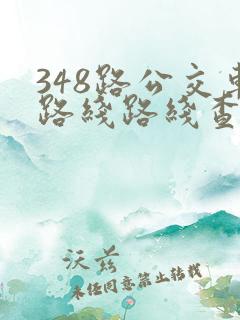 348路公交车
路线路线查
沃兹
未经同意禁止转载